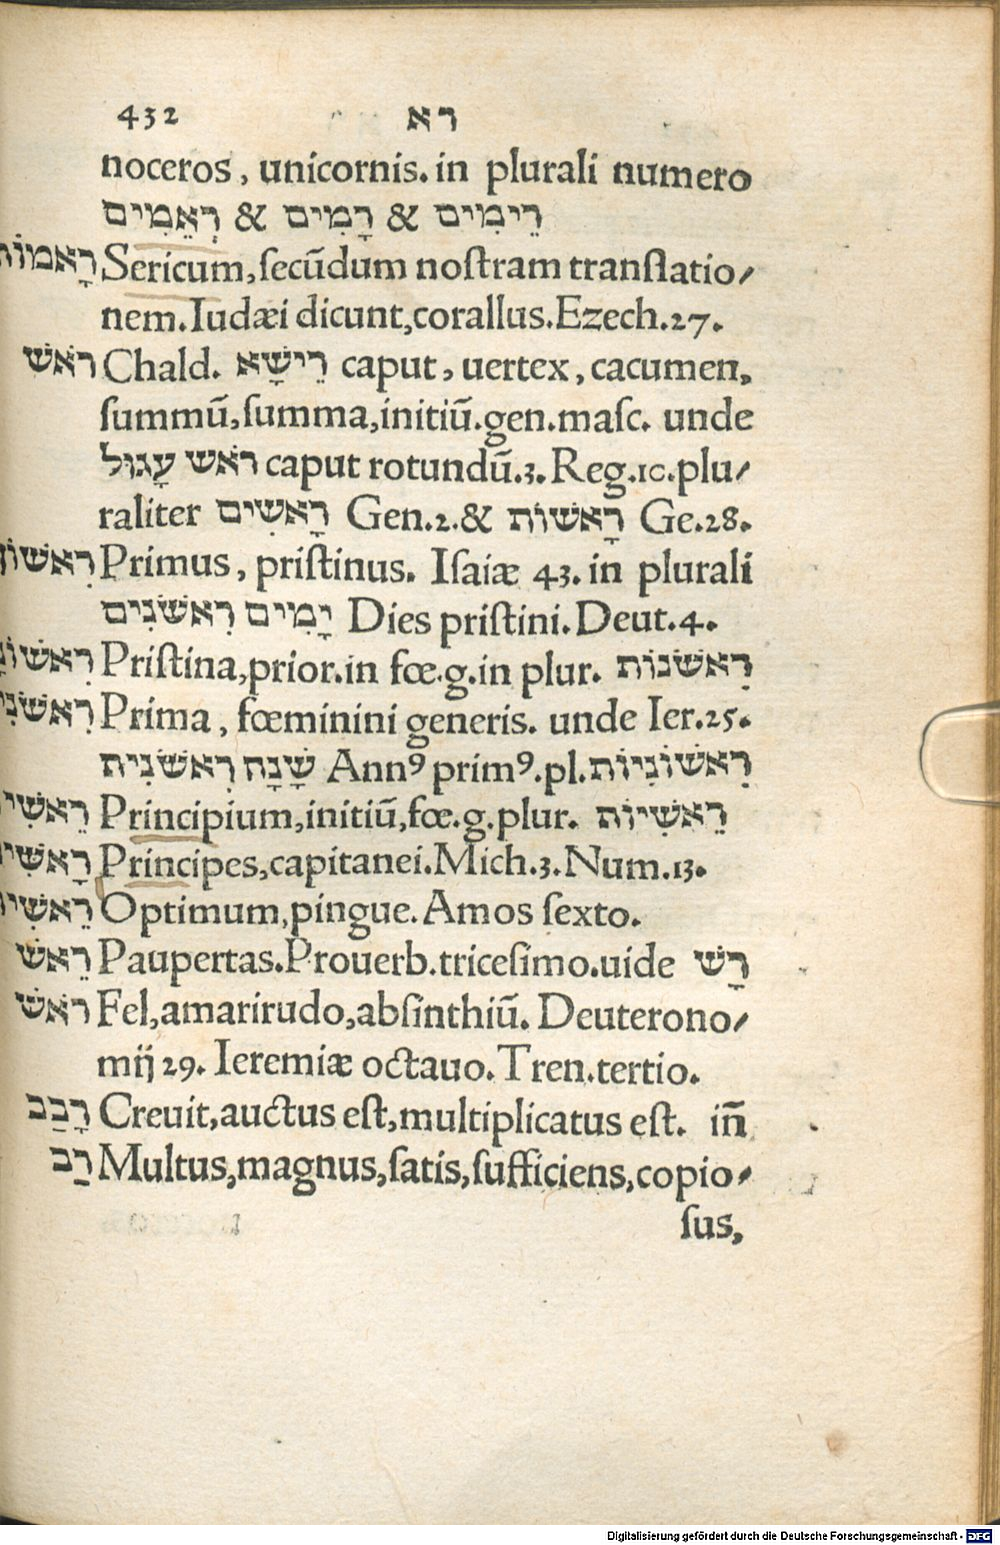 432 רא
noceros, unicornis. in plurali numero
רֵימִים & רָמִים & רְאֵמִים
רָאמוֹת Sericum, secūdum nostram translatio/
nem. Iudæi dicunt, corallus. Ezech. 27.
רֹאשׁ Chald. רֵישָׁא caput, uertex, cacumen,
summū, summa, initiū. gen. masc. unde
רֹאשׁ עָגוּל caput rotundū. 3. Reg. 10. plu/
raliter רָאשִׁים Gen. 2. & רָאשׁוֹת Ge. 28.
רִאשׁוֹן Primus, pristinus. Isaiæ 43. in plurali
יָמִים רִאשֹׁנִים Dies pristini. Deut. 4.
Pristina, prior. in fœ. g. in plur. רִאשֹׁנוֹת
Prima, fœminini generis. unde Ier. 25.
שָׁנָה רִאשֹׁנִית Annꝰ primꝰ. pl. רִאשׁוֹנִיוֹת
Principium, initiū, fœ. g. plur. רֵאשִׁיוֹת
Principes, capitanei. Mich. 3. Num. 13.
Optimum, pingue. Amos sexto.
רֵאשׁ Paupertas. Prouerb. tricesimo. uide רָשׁ
רֹאשׁ Fel, amarirudo, absinthiū. Deuterono/
mij 29. Ieremiæ octauo. Tren. tertio.
רָבַב Creuit, auctus est, multiplicatus est. iñ
רַב Multus, magnus, satis, sufficiens, copio/
sus,
Digitalisierung gefördert durch die Deutsche Forschungsgemeinschaft - DFG